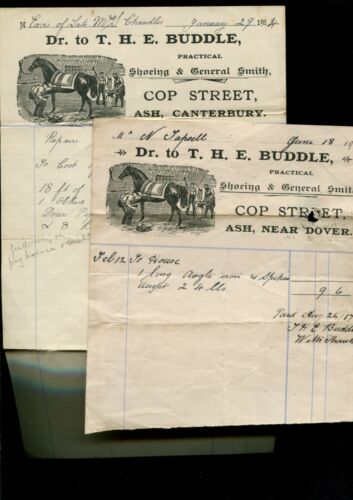 M Exrs of Late Mrs Chandler January 29 1914
Dr. to T. H. E. BUDDLE,
PRACTICAL
Shoeing & General Smith,
COP STREET,
ASH, CANTERBURY.
Repairs
To Cost
18 ft of
1 Others
Down
2 B
Mr N Tapsell June 18 19
Dr. to T. H. E. BUDDLE,
PRACTICAL
Shoeing & General Smith
COP STREET,
ASH, NEAR DOVER.
Feb 12 To House
1 long Angle iron & Spikes
Weight 24 lbs
9 6
Paid Aug 22 17
T H E Buddle
With Thanks